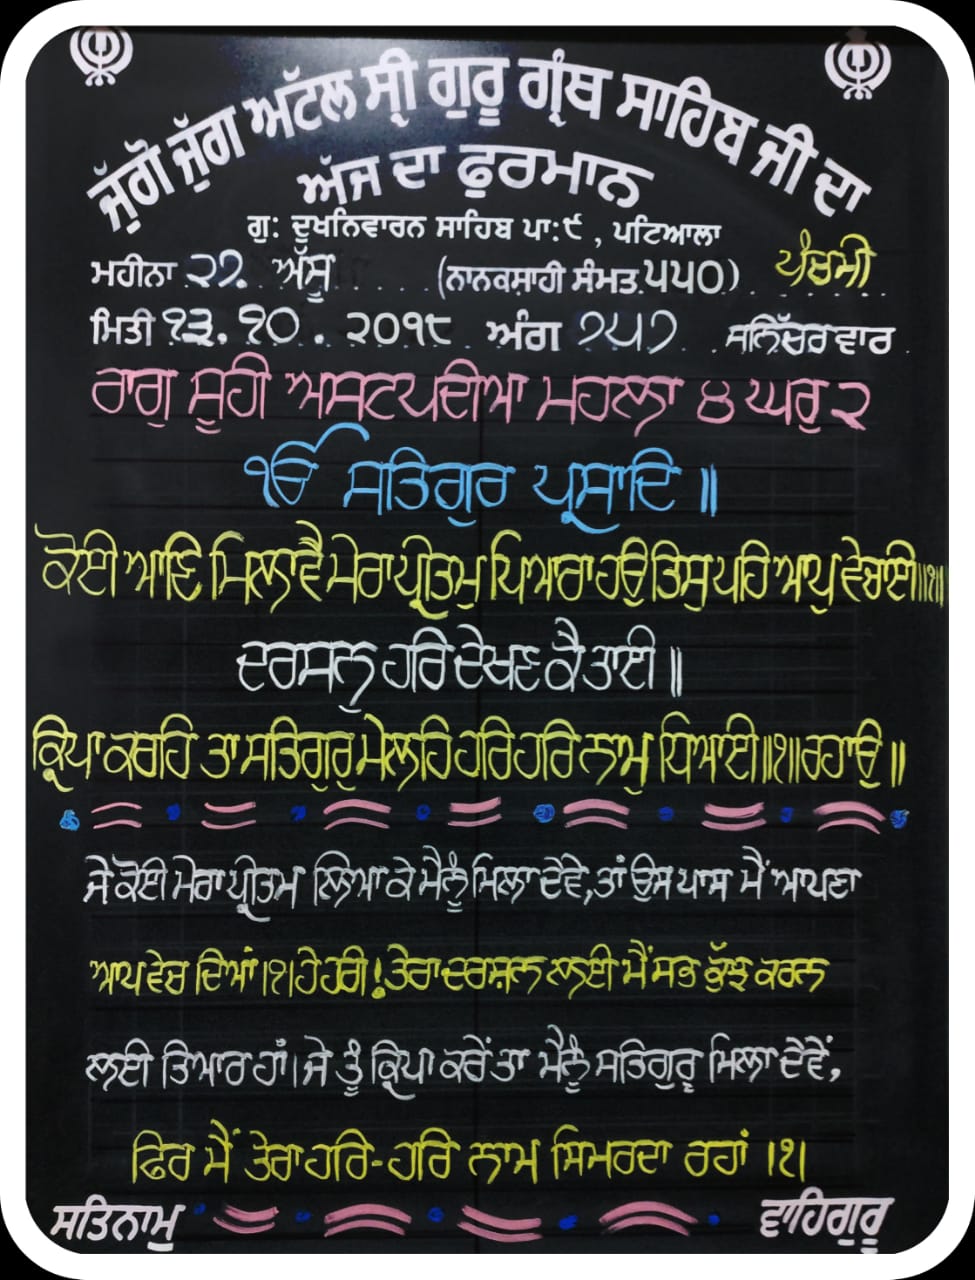 ਜੁੱਗੋ ਜੁੱਗ ਅਟੱਲ ਸ੍ਰੀ ਗੁਰੂ ਗ੍ਰੰਥ ਸਾਹਿਬ ਜੀ ਦਾ
ਅੱਜ ਦਾ ਫੁਰਮਾਨ
ਗੁ: ਦੂਖਨਿਵਾਰਨ ਸਾਹਿਬ ਪਾ:੯ , ਪਟਿਆਲਾ
ਮਹੀਨਾ ੨੭ ਅੱਸੂ (ਨਾਨਕਸ਼ਾਹੀ ਸੰਮਤ ੫੫੦) ਪੰਚਮੀ
ਮਿਤੀ ੧੩.੧੦.੨੦੧੮ ਅੰਗ ੭੫੭ ਸਨਿੱਚਰਵਾਰ
ਰਾਗੁ ਸੂਹੀ ਅਸਟਪਦੀਆ ਮਹਲਾ ੪ ਘਰੁ ੨
ੴ ਸਤਿਗੁਰ ਪ੍ਰਸਾਦਿ ॥
ਕੋਈ ਆਣਿ ਮਿਲਾਵੈ ਮੇਰਾ ਪ੍ਰੀਤਮੁ ਪਿਆਰਾ ਹਉ ਤਿਸੁ ਪਹਿ ਆਪੁ ਵੇਚਾਈ ॥੧॥
ਦਰਸਨੁ ਹਰਿ ਦੇਖਣ ਕੈ ਤਾਈ ॥
ਕ੍ਰਿਪਾ ਕਰਹਿ ਤਾ ਸਤਿਗੁਰੁ ਮੇਲਹਿ ਹਰਿ ਹਰਿ ਨਾਮੁ ਧਿਆਈ ॥੧॥ ਰਹਾਉ ॥
ਜੇ ਕੋਈ ਮੇਰਾ ਪ੍ਰੀਤਮ ਲਿਆ ਕੇ ਮੈਨੂੰ ਮਿਲਾ ਦੇਵੇ, ਤਾਂ ਉਸ ਪਾਸ ਮੈਂ ਆਪਣਾ
ਆਪ ਵੇਚ ਦਿਆਂ ।੧। ਹੇ ਹਰੀ! ਤੇਰਾ ਦਰਸ਼ਨ ਲਈ ਮੈਂ ਸਭ ਕੁੱਝ ਕਰਨ
ਲਈ ਤਿਆਰ ਹਾਂ। ਜੇ ਤੂੰ ਕ੍ਰਿਪਾ ਕਰੇਂ ਤਾ ਮੈਨੂੰ ਸਤਿਗੁਰੂ ਮਿਲਾ ਦੇਵੇਂ,
ਫਿਰ ਮੈਂ ਤੇਰਾ ਹਰਿ-ਹਰਿ ਨਾਮ ਸਿਮਰਦਾ ਰਹਾਂ ।੧।
ਸਤਿਨਾਮੁ ਵਾਹਿਗੁਰੂ